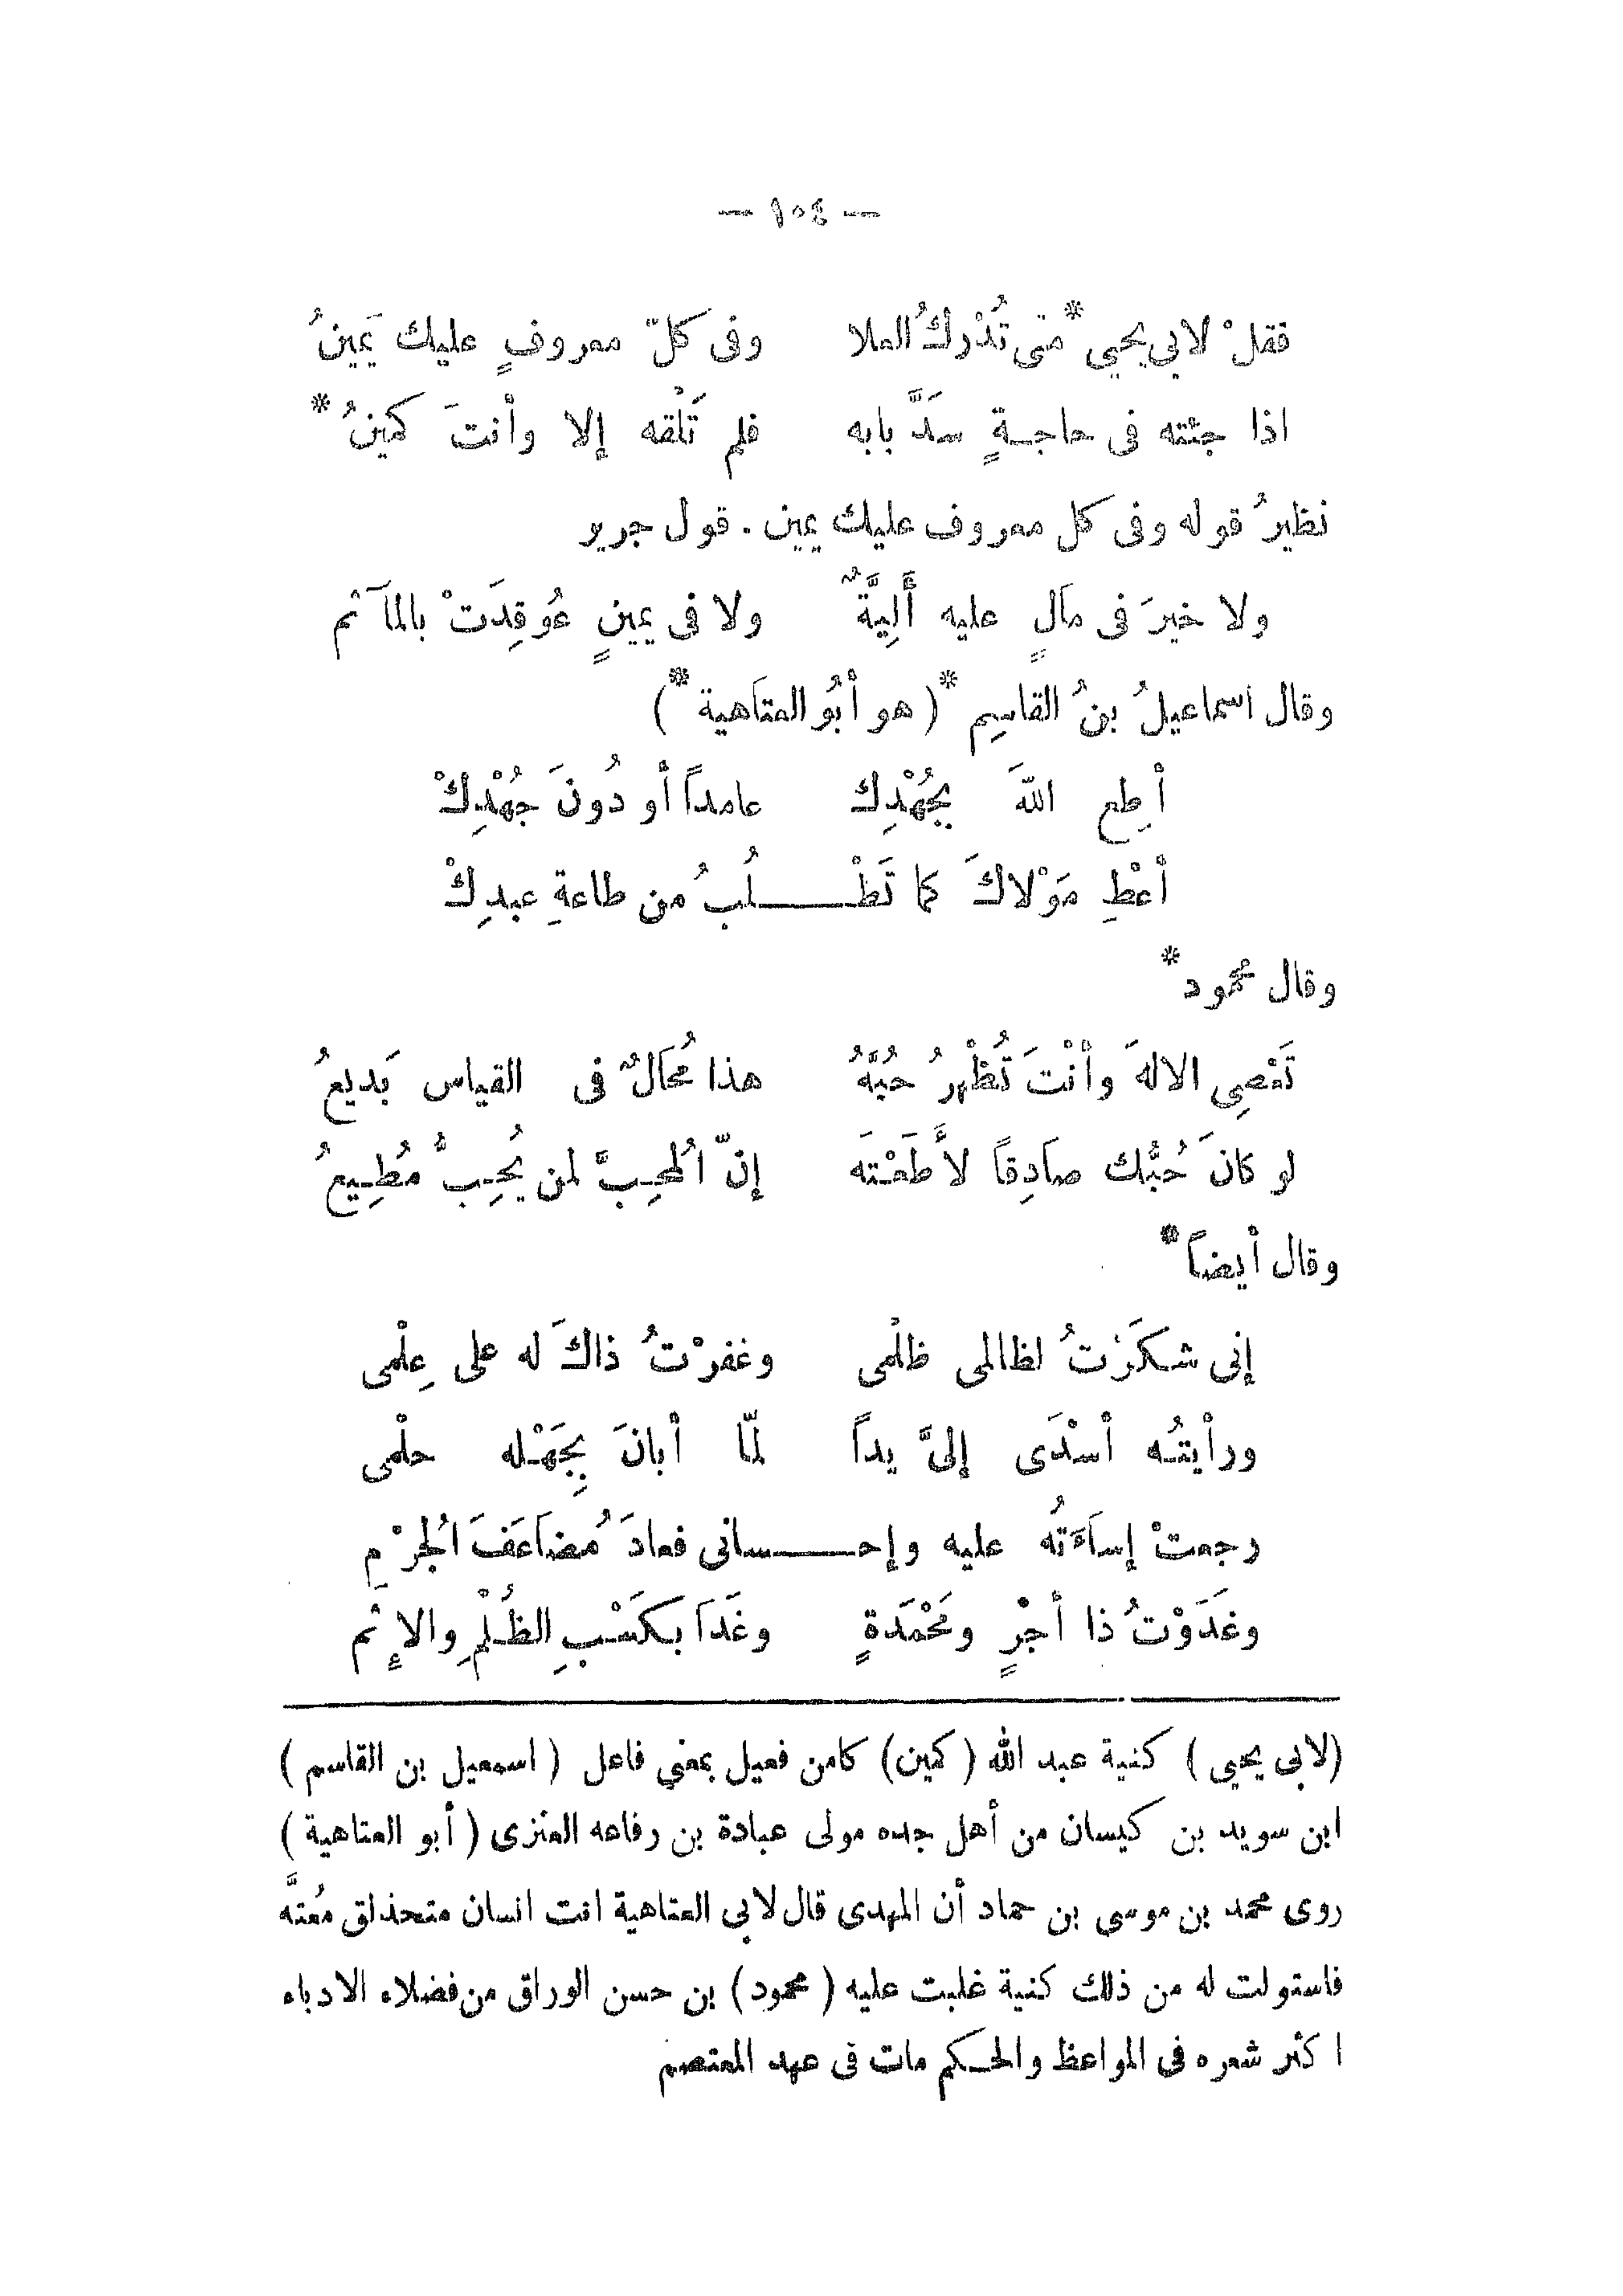 — ١٥٤ —
فقلْ لابي يحيي* متى تُدْركُ العلا وفى كلّ معروفٍ عليك يَمِينُ
اذا جئته فى حاجـةٍ سدَّ بابه فلم تَلْقه إلا وأنتَ كمينُ*
نظيرُ قوله وفى كل معروف عليك يمين . قول جرير
ولا خيرَ فى مالٍ عليه أَلِيَّةٌ ولا فى يمينٍ عُوقِدَتْ بالمآثم
وقال اسماعيلُ بنُ القاسِم* (هو أبُو العتاهية*)
أطِع اللهَ بِجُهْدِك عامداً أو دُونَ جُهْدِكْ
أعْطِ مَوْلاكَ كما تَطْـــلُبُ من طاعةِ عبدِكْ
وقال محمود*
تَعْصِى الالهَ وأنْتَ تُظْهِرُ حُبَّهُ هذا مُحَالٌ فى القياس بَديعُ
لو كانَ حُبُّك صادِقاً لأَطَعْتَه إنّ المُحِبَّ لمن يُحِبُّ مُطِيعُ
وقال أيضاً*
إنى شكَرْتُ لظالمى ظلْمى وغفرْتُ ذاكَ له على عِلْمى
ورأيتُه أسْدَى إلىَّ يداً لمّا أبانَ بِجَهْله حلْمى
رجعتْ إساءَتُه عليه وإحـــسانى فعادَ مُضاعَفَ الجُرْمِ
وغَدَوْتُ ذا أجْرٍ ومَحْمَدةٍ وغَدَا بكَسْبِ الظُلْمِ والإِثْم
(لابى يحيى ) كنية عبد الله ( كمين) كامن فعيل بمعنى فاعل ( اسمعيل بن القاسم )
ابن سويد بن كيسان من أهل جده مولى عبادة بن رفاعه العنزى ( أبو العتاهية )
روى محمد بن موسى بن حماد أن المهدى قال لابى العتاهية انت انسان متحذلق مُعتَّه
فاستولت له من ذلك كنية غلبت عليه ( محمود ) بن حسن الوراق من فضلاء الادباء
اكثر شعره فى المواعظ والحـكم مات فى عهد المعتصم